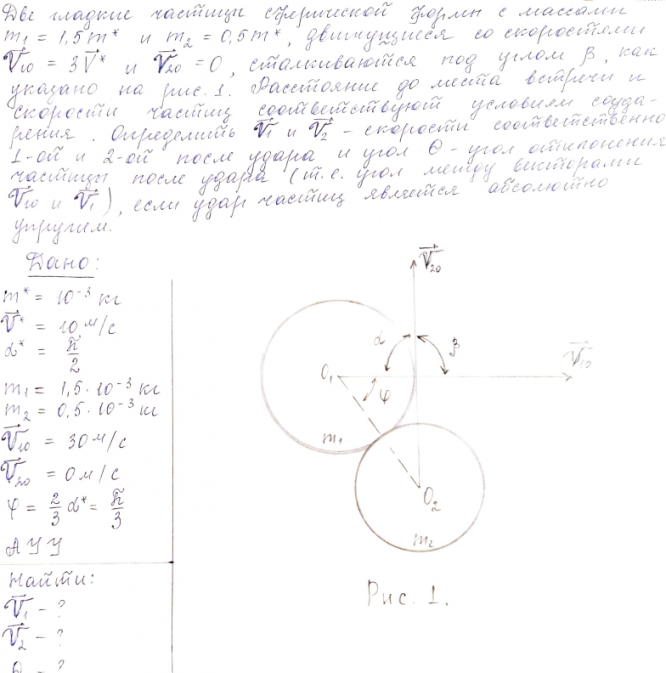 Две гладкие частицы сферической формы с массами
m₁ = 1,5m* и m₂ = 0,5m*, движущиеся со скоростями
V⃗₁₀ = 3V⃗* и V⃗₂₀ = 0, сталкиваются под углом β, как
указано на рис. 1. Расстояние до места встречи и
скорости частиц соответствуют условиям соуда-
рения. Определить V⃗₁ и V⃗₂ - скорости соответственно
1-ой и 2-ой после удара и угол Θ - угол отклонения
частицы после удара (т.е. угол между векторами
V⃗₁₀ и V⃗₁), если удар частиц является абсолютно
упругим.
Дано:
m* = 10⁻³ кг
V⃗* = 10 м/с
α* = π/2
m₁ = 1,5·10⁻³ кг
m₂ = 0,5·10⁻³ кг
V⃗₁₀ = 30 м/с
V⃗₂₀ = 0 м/с
φ = 2/3 α* = π/3
АУУ
Найти:
V⃗₁ - ?
V⃗₂ - ?
Θ - ?
V⃗₂₀
α
β
V⃗₁₀
O₁
φ
m₁
O₂
m₂
Рис. 1.